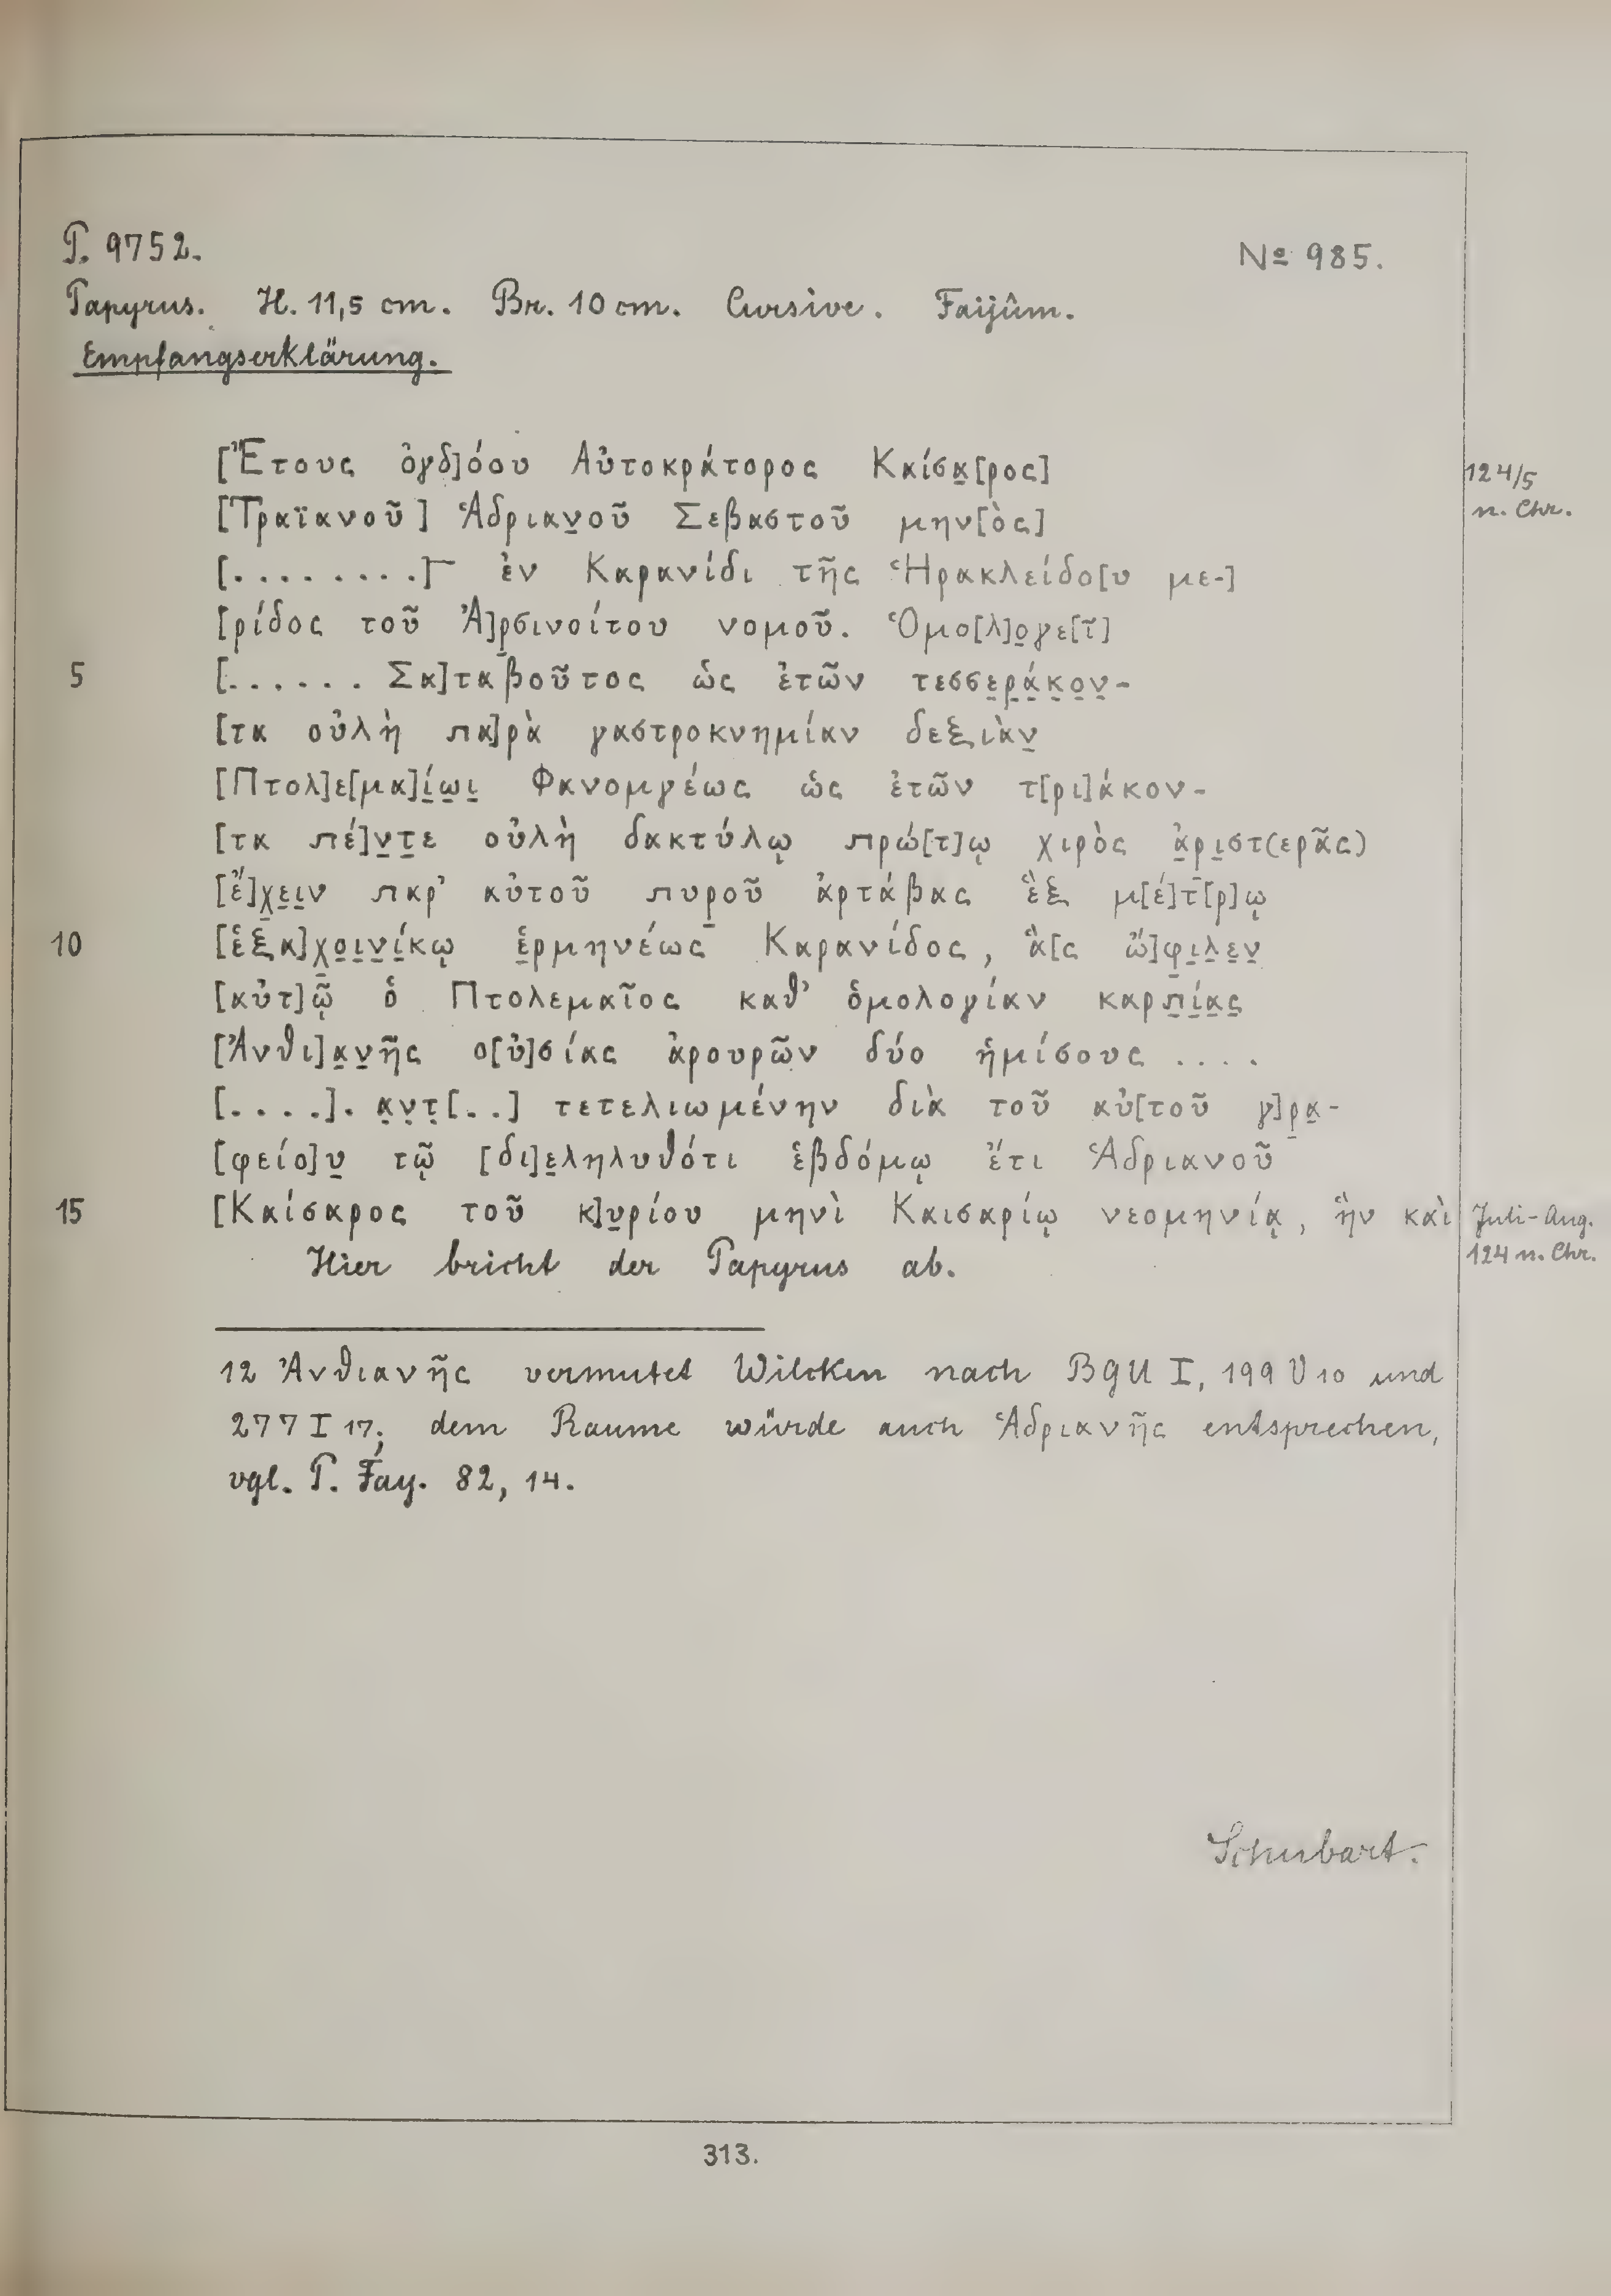 P. 9752.
No 985.
Papyrus. H. 11,5 cm. Br. 10 cm. Cursive. Faijûm.
Empfangserklärung.
[Ἔτους ὀγδ]όου Αὐτοκράτορος Καίσα̣[ρος]
124/5
n. Chr.
[Τραϊανοῦ] Ἁδριαν̣οῦ Σεβαστοῦ μην[ὸς]
[. . . . . . . .]‾ ἐν Καρανίδι τῆς Ἡρακλείδο[υ με-]
[ρίδος τοῦ Ἀ]ρ̣σινοίτου νομοῦ. Ὁμο[λ]ο̣γε[ῖ]
5 [. . . . . . Σα]ταβοῦτος ὡς ἐτῶν τεσσε̣ρ̣ά̣κ̣ο̣ν̣-
[τα οὐλὴ πα]ρὰ γαστροκνημίαν δεξιὰν̣
[Πτολ]ε[μα]ί̣ω̣ι̣ Φανομγέως ὡς ἐτῶν τ[ρι]άκον-
[τα πέ]ν̣τ̣ε οὐλὴ δακτύλῳ πρώ[τ]ῳ χιρὸς ἀ̣ρι̣στ(ερᾶς)
[ἔ]χ̣ε̣ι̣ν παρ' αὐτοῦ πυροῦ ἀρτάβας ἓξ μ[έ]τ[ρ]ῳ
10 [ἑξα]χ̣ο̣ι̣ν̣ί̣κῳ ἑ̣ρμηνέως Καρανίδος, ἃ[ς ὤ]φι̣λ̣ε̣ν̣
[αὐτ]ῷ ὁ Πτολεμαῖος καθ' ὁμολογίαν καρπ̣ί̣α̣ς̣
[Ἀνθι]α̣ν̣ῆς ο[ὐ]σίας ἀρουρῶν δύο ἡμίσους . . . .
[. . . .]. α̣ν̣τ̣[. .] τετελιωμένην διὰ τοῦ αὐ[τοῦ γ]ρ̣α̣-
[φείο]υ̣ τῷ [δι]ε̣ληλυθότι ἑβδόμῳ ἔτι Ἁδριανοῦ
15 [Καίσαρος τοῦ κ]υ̣ρίου μηνὶ Καισαρίῳ νεομηνίᾳ, ἣν καὶ
Juli-Aug.
124 n. Chr.
Hier bricht der Papyrus ab.
12 Ἀνθιανῆς vermutet Wilcken nach BGU I, 199 V 10 und
277 I 17; dem Raume würde auch Ἁδριανῆς entsprechen,
vgl. P. Fay. 82, 14.
Schubart.
313.